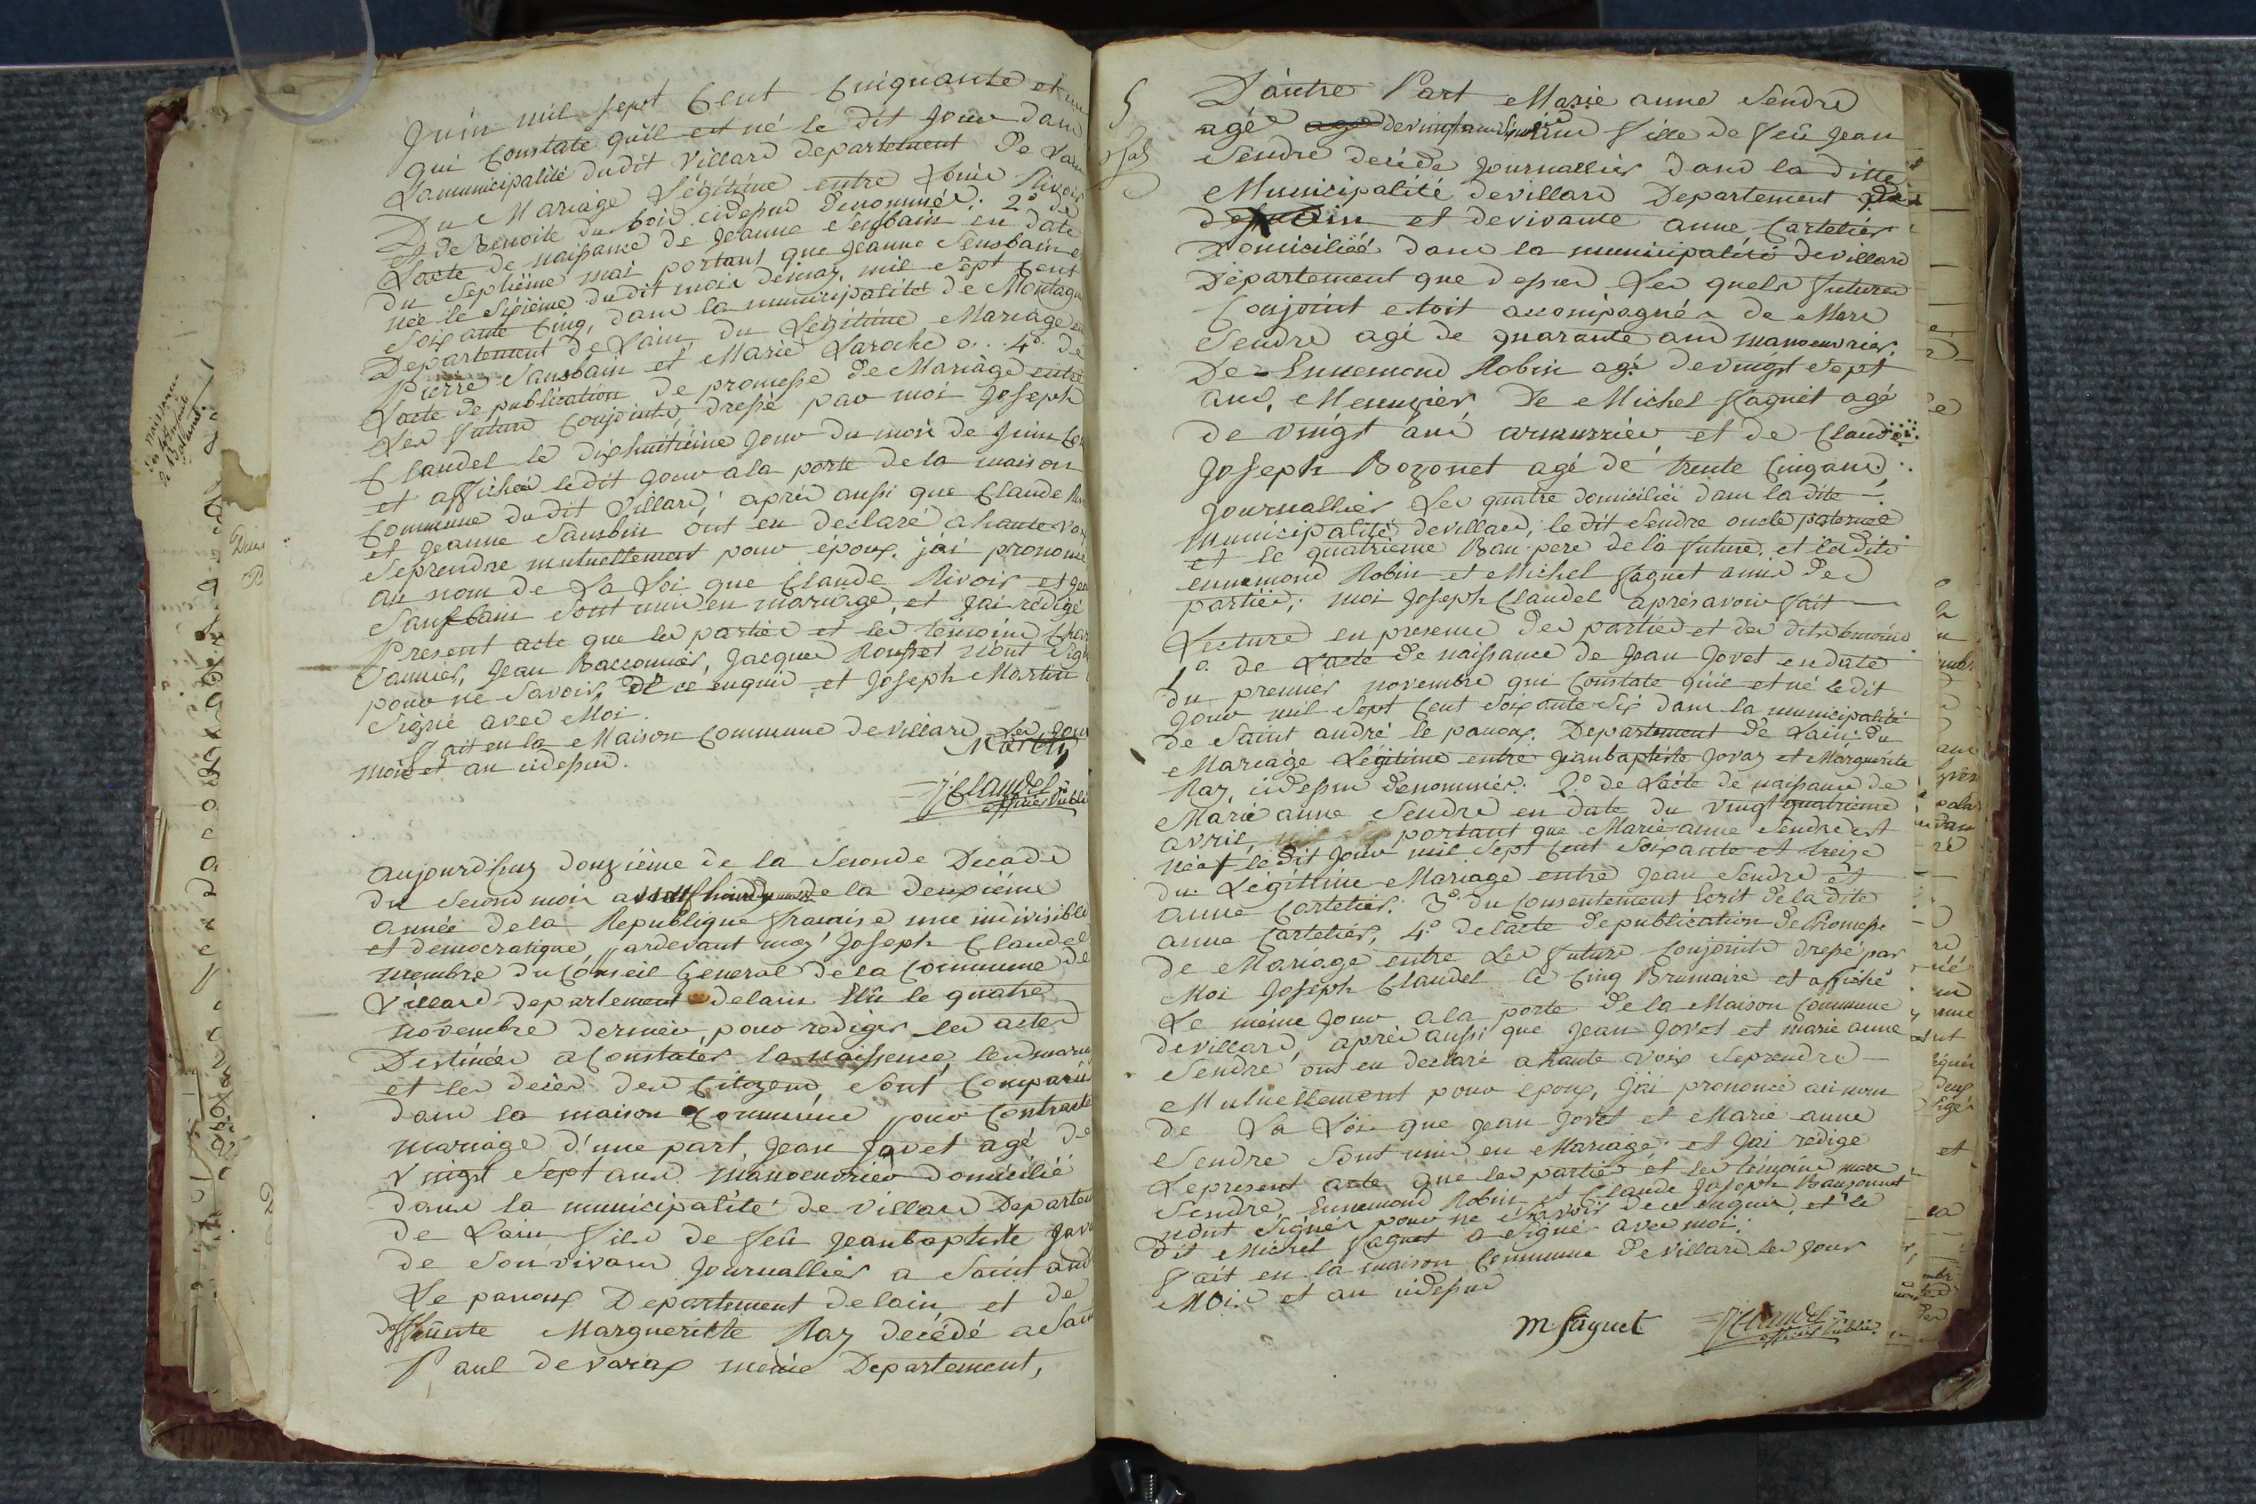 Juin mil sept Cent Cinquante et un
qui Constate quil est né le dit Jour dans
Lamunicipalité dudit Villard departement De Lain
Du Mariage Légitime entre Louis Rivoir
et de Benoite du bois cidepud dénommés: 2° de
Lacte de naissance de Jeanne Sensbain en date
du septième mai portant que Jeanne Sensbain est
née le Sixième dudit mois demay, mil sept Cent
Soixante Cinq, dans la municipalité de Montagu
Departement de Lain, du Légitime Mariage
Pierre Sansbain et Marie Laroche o... 4° de
Lacte de publication de promesse de Mariage entre
Les futurs Conjoints, dressé par moi Joseph
Claudel le dixhuitième Jour du mois de Juin
et affichée ledit Jour a la porte de la maison
Commune du dit Villard, après aussi que Claude
et Jeanne Sansbin ont eu declaré a haute voix
Seprendre mutuellement pour époux. j'ai prononcé
au nom de La Loi que Claude Rivoir et
Sansbain sont unis en mariage, et Jai rédigé
Present acte que les parties et les témoins
Jean Bacconnier, Jacques Rousset n'ont signé
pour ne Savoir, de ce enquis et Joseph Martin
Signé avec Moi.
Fait en la Maison Commune de villard Les Jour
mois et an cidessus.
Martin
J. Claudel
officier Public
aujourdhuy douzième de la Seconde Decade
du second mois de la deuxième
année de la Republique française une indivisible
et démocratique, pardevant moy Joseph Claudel
membre du Conseil General de la Commune de
Villard departement delain Elû le quatre
novembre dernier pour rediger les actes
Destinées a Constater la naissence, les mariages
et les decès des Citoyens, sont Comparus
dans la maison Commune pour Contracter
mariage d'une part, Jean Jovet agé de
vingt Sept ans manoeuvrier domicilié
dans la municipalité de Villard Departement
de Lain fils de feû Jeanbaptiste
de Son vivant Journallier a Saint andré
Le panoux Departement delain, et de
deffunte Marguerite Ray decédé a Saint
Paul devarax même Departement,
D'autre Part Marie anne Sendre
agée fille de feû Jean
Sendre decedé Journallier dans la ditte
Municipalité devillard Departement
de Lain et devivante anne Cartelier
Domiciliéé dans la municipalité devillard
Département que dessus Les quels futures
Conjoint etoit accompagnés de Marc
Sendre agé de quarante ans manoeuvrier,
De Ennemond Robin agé devingt Sept
ans, Menuzier, De Michel faguet agé
de vingt ans armurrier et de Claude
Joseph Bozonet agé de trente Cinq ans,
Journallier Les quatre domiciliés dans la dite
Municipalité devillard, le dit Sendre oncle paternel
et le quatrieme Bau-pere de la future, et ledit
ennemond Robin et Michel faguet amis des
parties; moi Joseph Claudel après avoir fait
Lecture en presence des parties et des dits temoins
1° de Lacte de naissance de Jean Jovet en date
du premier novembre qui Constate qu'il est né le dit
Jour mil Sept Cent Soixante Six dans la municipalité
de Saint andré le panoux, Departement de Lain, du
Mariage Légitime entre Jeanbaptiste Jovaz et Marguerite
Ray, cidessus denommés: 2° de Lacte de naissance de
Marie anne Sendre en date du vingt quatrième
avril, portant que Marie anne Sendre est
née ledit Jour mil Sept Cent Soixante et treize
du Légittime Mariage entre Jean Sendre et
anne Cartelier: 3° du Consentement Ecrit de la dite
anne Cartelier, 4° delacte de publication de Promesse
de Mariage entre Les futurs Conjoints dressé par
Moi Joseph Claudel le Cinq Brumaire et affiché
Le même Jour a la porte de la Maison Commune
devillard, après aussi que Jean Jovet et marie anne
Sendre ont eu declaré a haute voix seprendre
Mutuellement pour epoux, J'ai prononcé au nom
de La Loi que Jean Jovet et Marie anne
Sendre Sont unis en Mariage; et Jai redigé
Lepresent acte que les parties et les témoins marc
Sendre, Ennemond Robin et Claude Joseph Bauzonnet
n'ont Signés pour ne Savoir de ce enquis, et le
dit Michel faguet a Signé avec moi.
Fait en la maison Commune de villard les Jour
Mois et an cidessus
M faguet
J. Claudel
officier Public